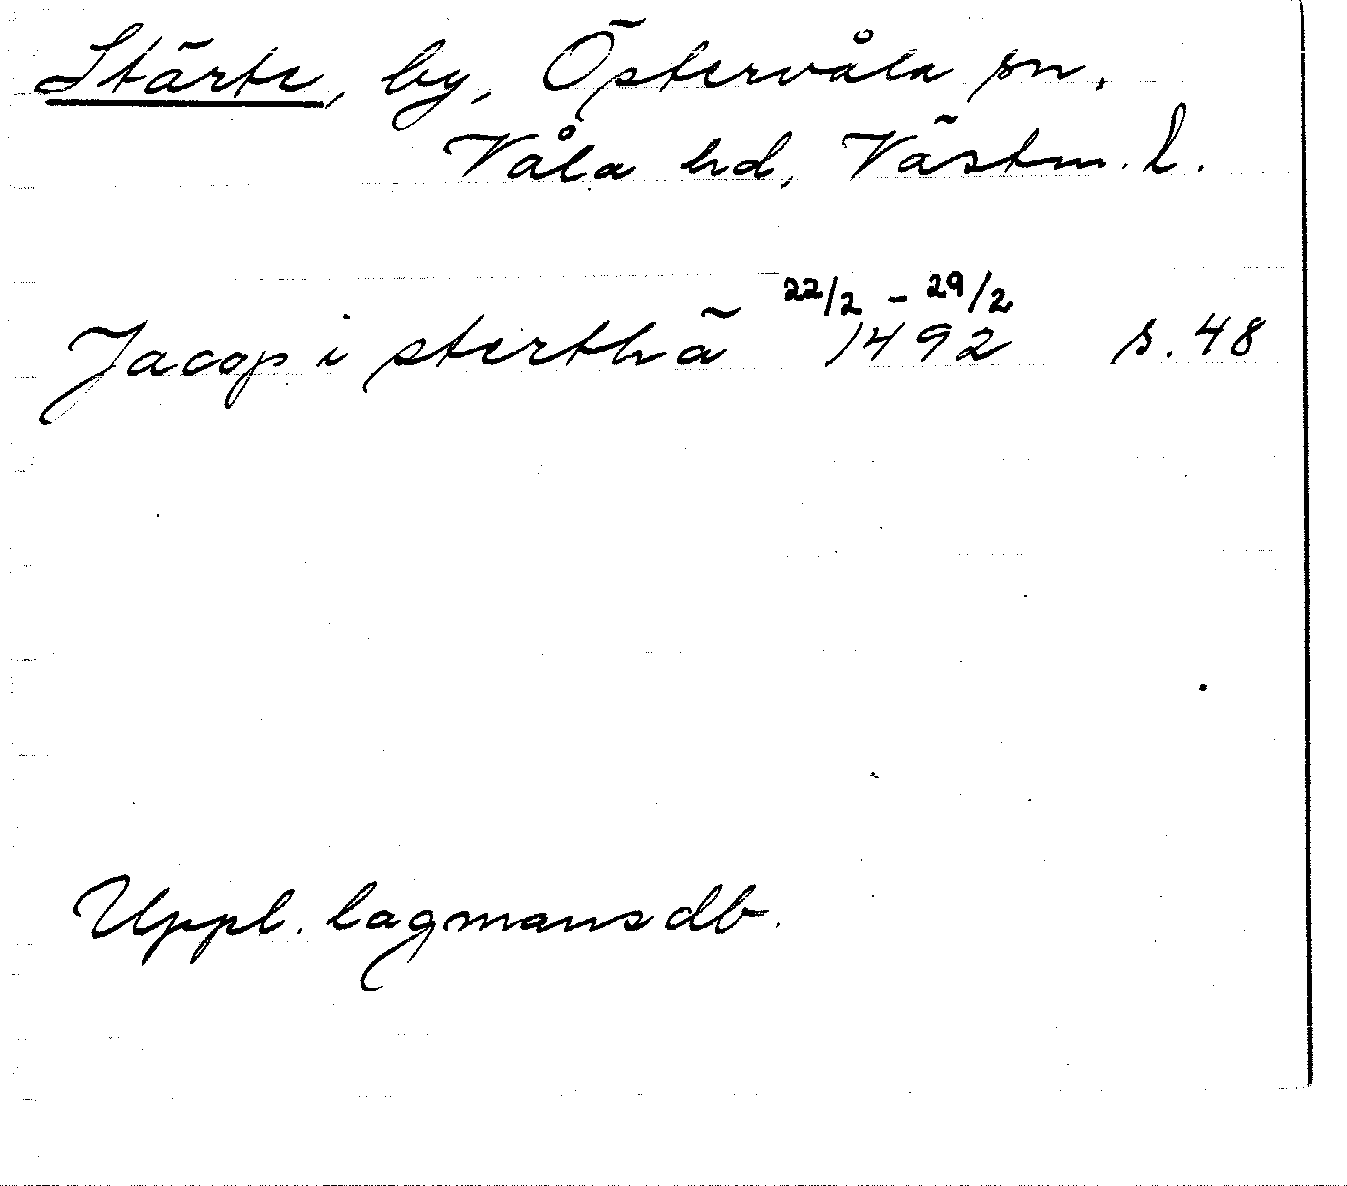 Stärte, by, Östervåla sn.
Våla hd, Västm. l.
22/2 - 29/2
Jacop i sterthä 1492 s. 48
Uppl. lagmansdb.